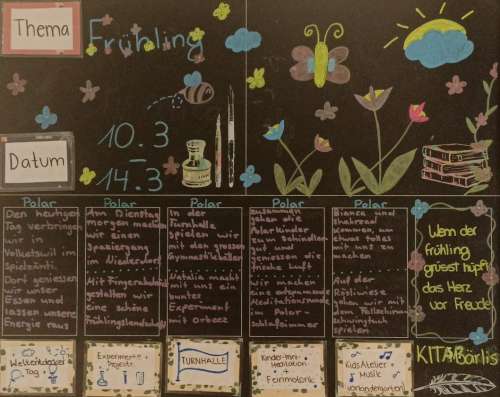 Thema
Frühling
Datum
10.3
-
14.3
Polar
Den heutigen
Tag verbringen
wir in
Volketswil im
Dort geniessen
wir unser
Essen und
lassen unsere
Energie raus
Polar
Am Dienstag
morgen machen
wir einen
Spaziergang
im Niederdorf
Mit Fingerabdrück
gestalten wir
eine schöne
Frühlingslandschaft
Polar
In der
Turnhalle
spielen wir
mit den grossen
Gymnastikbällen
Natalia macht
mit uns ein
buntes
Experiment
mit
Polar
Zusammen
gehen die
Polarkinder
zum
und
geniessen die
frische Luft
Wir machen
eine
Meditationsrunde
im Polar-
Schlafzimmer
Polar
Bianca und
kommen, um
etwas tolles
mit uns zu
machen
Auf der
gehen wir
mit dem Fallschirm-
Schwungtuch
spielen
Wenn der
frühling
grüsst hüpft
das Herz
vor Freude
Weltentdecker
Tag
Experimente +
Projekte
TURNHALLE
Kinder-
Meditation
+
Feinmotorik
Kids Atelier +
Musik
KITABärlis